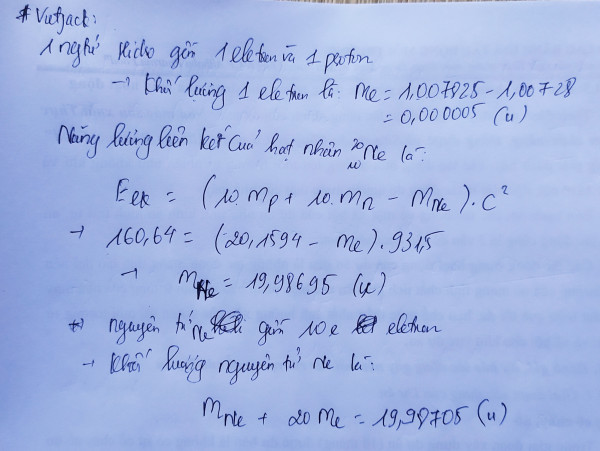 # Vietjack:
1 ngtử Hidro gồm 1 eletron và 1 proton
→ Khối lượng 1 eletron là: me = 1,007825 - 1,00728
= 0,000005 (u)
Năng lượng liên kết của hạt nhân ²⁰₁₀Ne là:
Eℓk = (10.mp + 10.mn - mNe).c²
→ 160,64 = (20,1594 - me).931,5
→ mNe = 19,98695 (u)
*) nguyên tử Ne gồm 10e eletron
→ Khối lượng nguyên tử Ne là:
mNe + 20me = 19,98705 (u)